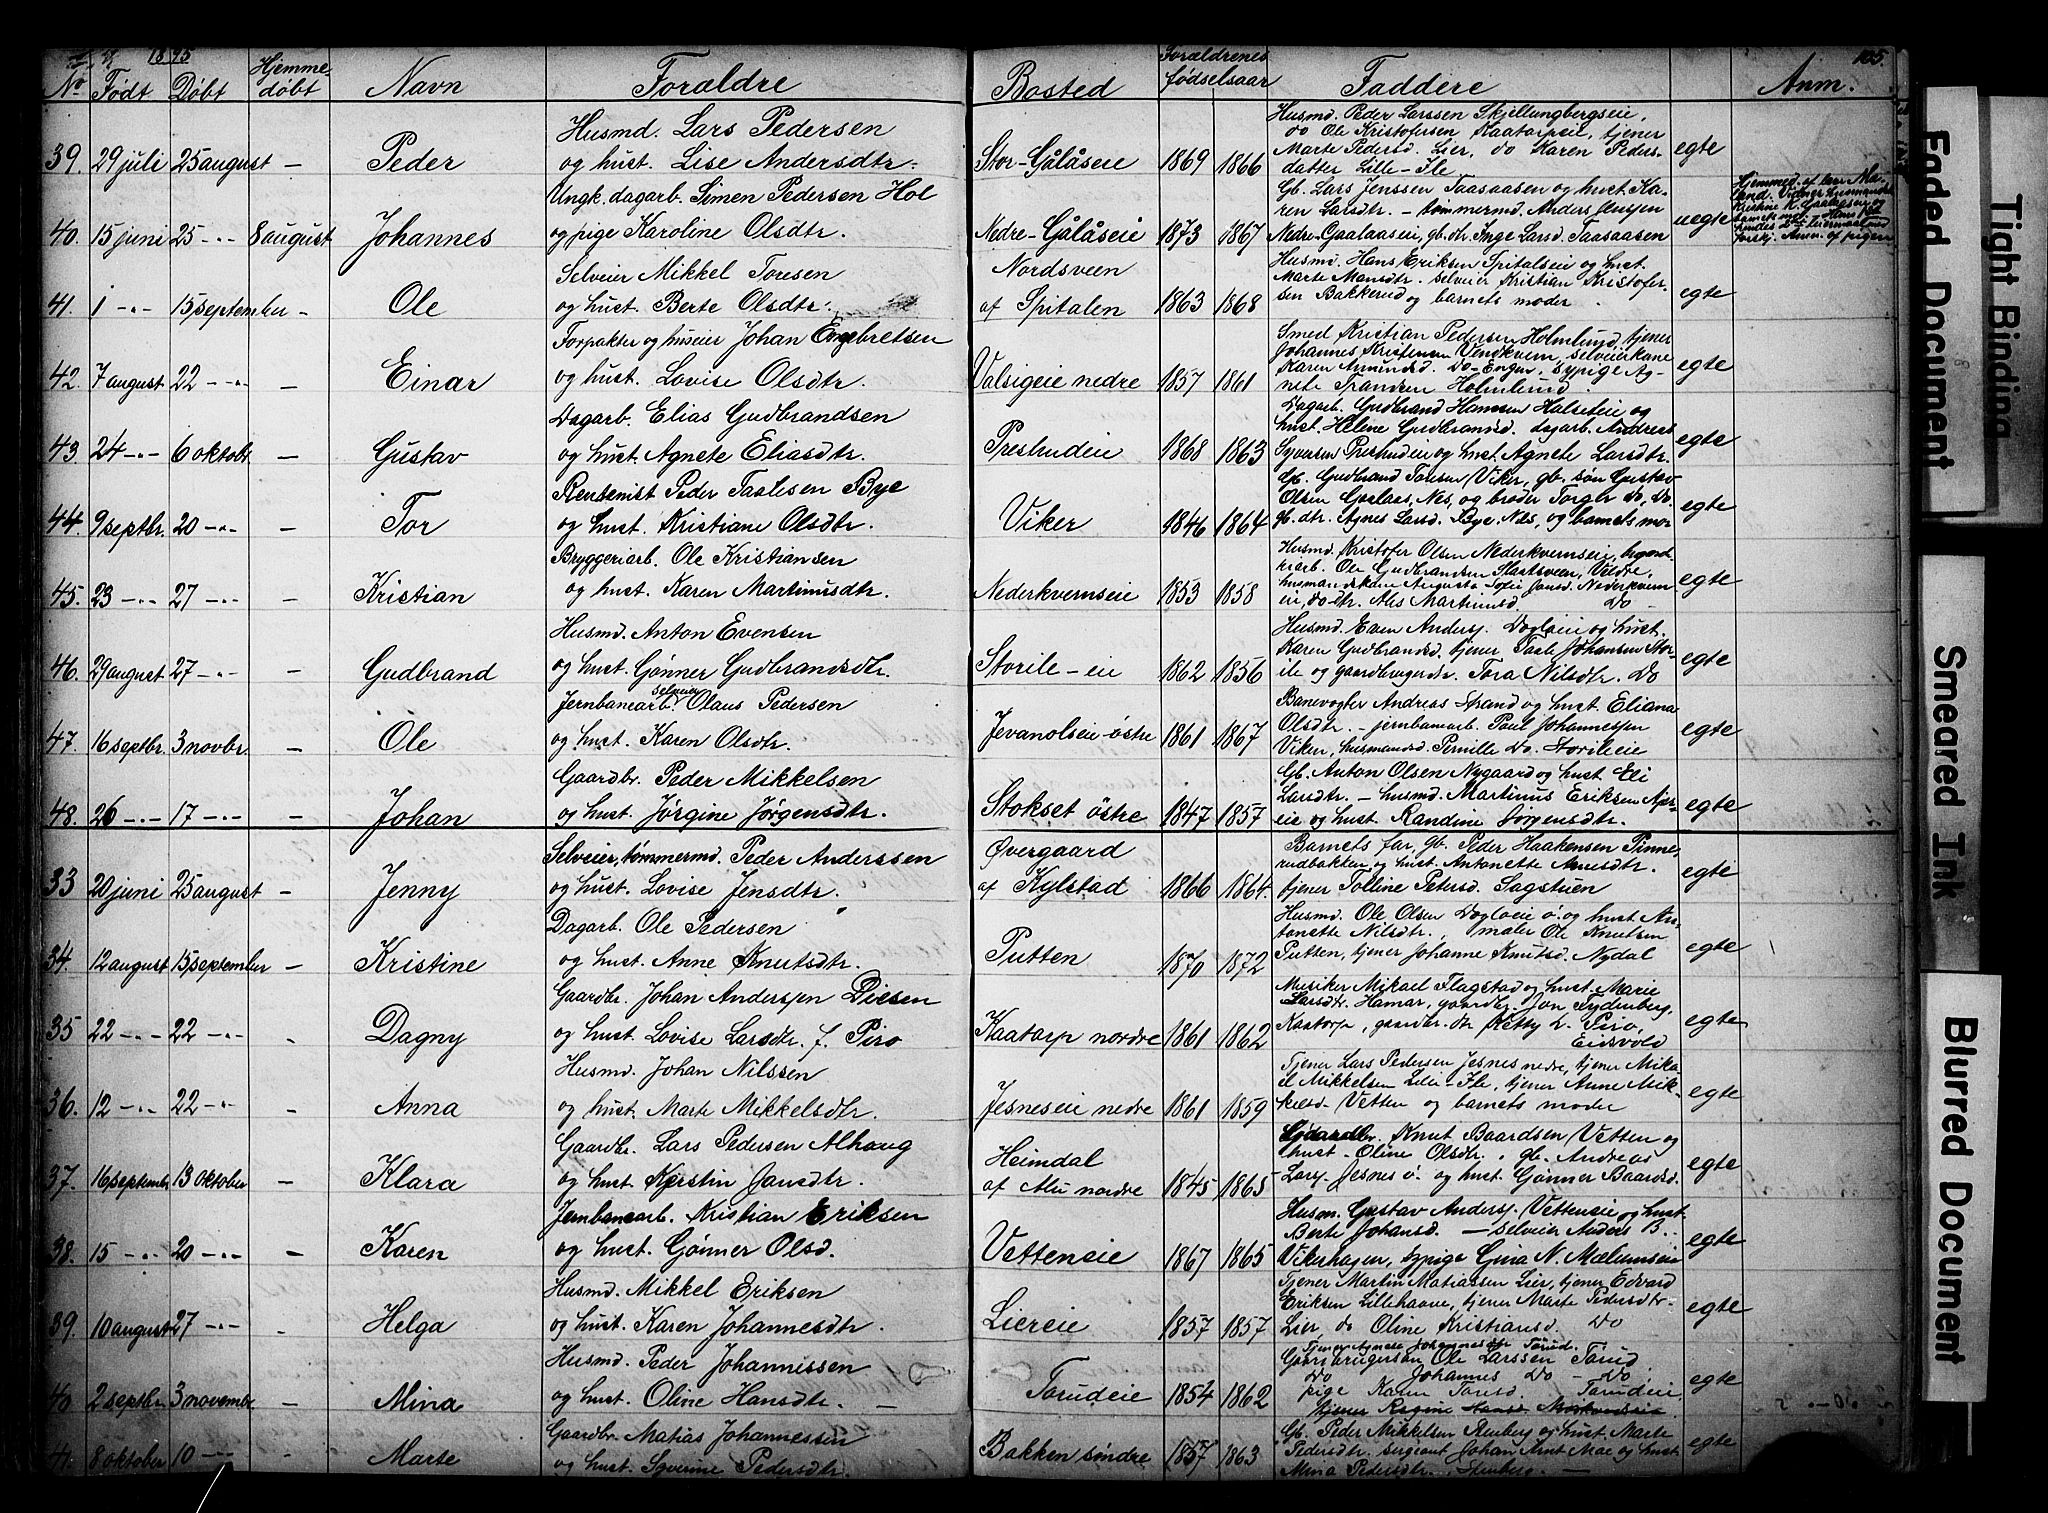 1895
105.
No Født Døbt Hjemme-døbt Navn Forældre Bosted Forældrenes fødselsaar Faddere Anm.
39. 29 juli 25 august - Peder
Husmd. Lars Pedersen
og hust. Lise Andersdtr.
Stor-Gålåseie 1869 1866
Husmd. Peder Larssen Skjellungbergseie,
do Ole Kristofersen Kaatorpseie, tjener
Marte Pedersd. Lier, do Karen Peders-
datter Lille-Ile
egte
40. 15 juni 25 -"- 8 august Johannes
Ungk. dagarb. Simen Pedersen Hol
og pige Karoline Olsdtr.
Nedre-Gålåseie 1873 1867
Gb. Lars Jenssen Taasaasen og hust. Ka-
ren Larsdtr. - tømmermd. Anders Jenssen
Nedre-Gaalaaseie, gb. dtr. Inge Larsd. Taasaasen
uegte
41. 1 -"- 15 september - Ole
Selveier Mikkel Toresen
og hust. Berte Olsdtr.
Nordsveen
af Spitalen 1863 1868
Husmd. Hans Eriksen Spitalseie og hust.
Marte Hansdtr. selveier Kristian Kristofer-
sen Bakkerud og barnets moder
egte
42. 7 august 22 -"- - Einar
Forpakter og huseier Johan Engebretsen
og hust. Lovise Olsdtr.
Valsigeie nedre 1857 1861
Smed Kristian Pedersen Holmlund, tjener
Johannes Kristensen Vendkvern, selveierkone
Karen Amundsd. Do-Engen, sypige Ag-
nete Frandsen Holmlund
egte
43. 24 -"- 6 oktobr - Gustav
Dagarb. Elias Gudbrandsen
og hust. Agnete Eliasdtr.
Presthudeie 1868 1863
Dagarb. Gudbrand Hanssen Halseteie og
hust. Helene Gudbrandsd. dagarb. Andreas
Syversen Presthudeie og hust. Agnete Larsdtr.
egte
44. 9 septbr. 20 -"- - Tor
Rentenist Peder Taalesen Bye
og hust. Kristiane Olsdtr.
Viker 1846 1864
Gb. Gudbrand Toresen Viker, gb. søn Gustav
Olsen Gaalaas, Nes, og broder Torger do, Do
gb. dtr. Agnes Larsd. Bye, Nes, og barnets mor
egte
45. 23 -"- 27 -"- - Kristian
Bryggeriarb. Ole Kristiansen
og hust. Karen Martinusdtr.
Nederkvernseie 1853 1858
Husmd. Kristofer Olsen Nederkvernseie, brænde-
riarb. Ole Gudbrandsen Slaatsveen, Veldre,
husmandskone Augusta Sofie Jonsd. Nederkvern
eie, do-dtr. Alis Martinusd. Do
egte
46. 29 august 27 -"- - Gudbrand
Husmd. Anton Evensen
og hust. Gønner Gudbrandsdtr.
Storile-eie 1862 1856
Husmd. Even Andersj. Dogloeie og hust.
Karen Gudbrandsd. tjener Taale Johansen Stor-
ile og gaardbrugerdtr. Tora Nilsdtr. Do
egte
47. 16 septbr. 3 novbr. - Ole
Jernbanearb. selveier Olaus Pedersen
og hust. Karen Olsdtr.
Jevanolseie-østre 1861 1867
Banevogter Andreas Strand og hust. Eliana
Olsdtr. - jernbanearb. Paul Johannesjen
Viken, husmandsd. Pernille Do. Storileeie
egte
48. 26 -"- 17 -"- - Johan
Gaardbr. Peder Mikkelsen
og hust. Jørgine Jørgensdtr.
Stokset østre 1847 1857
Gb. Anton Olsen Nygaard og hust. Eli
Larsdtr. - husmd. Martinus Eriksen Njør-
eie og hust. Randine Jørgensdtr.
egte
33 20 juni 25 august - Jenny
Selveier, tømmermd. Peder Anderssen
og hust. Lovise Jensdtr.
Øvergaard
af Kylstad 1866 1864.
Barnets far, gb. Peder Haakensen Finne-
rudbakken og hust. Antonette Arnesdtr.
tjener Tolline Petersd. Sagstuen
egte
34. 12 august 15 september - Kristine
Dagarb. Ole Pedersen
og hust. Anne Knutsdtr.
Putten 1870 1872
Husmd. Ole Olsen Dogloeie ø. og hust An-
tonette Nilsdtr., maler Ole Knutsen
Putten, tjener Johanne Knutsd. Nydal
egte
35 22 -"- 22 -"- - Dagny
Gaardbr. Johan Andersjen Diesen
og hust. Lovise Larsdtr. f. Piro
Kaatorp nordre 1861 1862
Musiker Mikael Flagstad og hust. Marie
Larsdtr. Hamar, gaardbr. Jon Frydenberg,
Kaatorp, gaardbr. dtr Ketty L. Piro,
Eidsvold
egte
36. 12 -"- 22 -"- - Anna
Husmd. Johan Nilssen
og hust. Marte Mikkelsdtr.
Jesneseie nedre 1861 1859
Tjener Lars Pedersen Jesnes nedre, tjener Mika-
el Mikkelsen Lille-Ile, tjener Anne Mik-
kelsd. Vetten og barnets moder
egte
37. 16 septembr 13 oktober - Klara
Gaardbr. Lars Pedersen Alhaug
og hust. Kjerstin Jansdtr.
Heimdal
af Alu nordre 1845 1865
Gaardbr. Knut Baardsen Vetten og
hust. Oline Olsdtr., gb. Andreas
Larsj. Jesnes ø. og hust. Gønner Baardsd.
egte
38. 15 -"- 20 -"- - Karen
Jernbanearb. Kristian Eriksen
og hust. Gønner Olsd.
Vetteneie 1867 1865
Husm. Gustav Andersj. Vetteneie og hust.
Berte Johansd. - selveier Anders B.
Vikerhagen, sypige Gina N. Mælumseie
egte
39. 10 august 27 -"- - Helga
Husmd. Mikkel Eriksen
og hust. Karen Johannesdtr.
Liereie 1857 1857
Tjener Martin Matiassen Lier, tjener Edvard
Eriksen Lillehaave, tjener Marte Pedersdtr.
Lier, do Oline Kristiansd. Do
egte
40. 2 septbr. 3 novembr - Mina
Husmd. Peder Johannessen
og hust. Oline Hansdtr. -
Torudeie 1854 1862
Tjener Agnete Johannesdtr Torud.
Gaardbrugersøn Ole Larssen Torud
Do Johannes Do - Do,
pige Karen Toresd. Torudeie
egte
41. 8 oktober 10 -"- Marte
Gaardbr. Matias Johannessen
og hust. Syverine Pedersdtr.
Bakken søndre 1857 1863
Gb. Peder Mikkelsen Stenberg og hust. Marte
Pedersdtr. sergeant Johan Arnt Moe og hust.
Mina Pedersdtr., Stenberg. -
egte
Faded Document
Tight Binding
Smeared Ink
Blurred Document